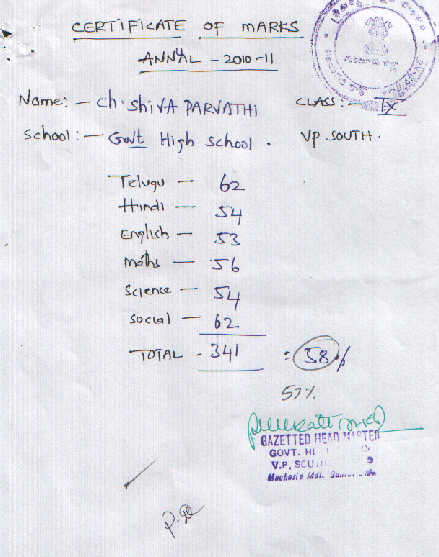 CERTIFICATE OF MARKS
ANNAL - 2010-11
Name:- Ch. ShiVA PARVATHI CLASS:- IX
School:- Govt High School. V.P. SOUTH.
Telugu - 62
Hindi - 54
English - 53
maths - 56
Science - 54
Social - 62
TOTAL - 341 = 58%
57%
GAZETTED HEAD MASTER
GOVT. HI
V.P. SOU